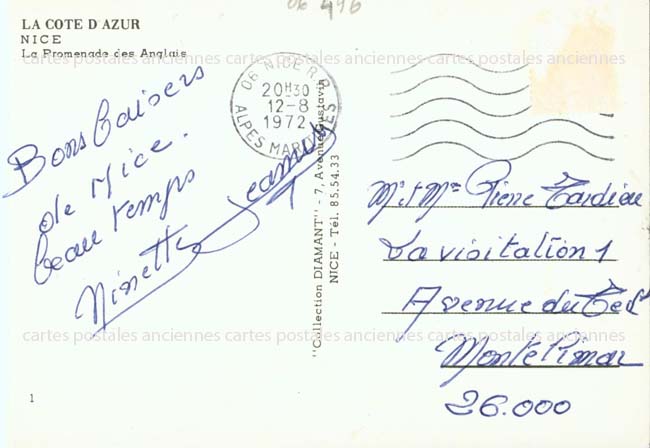 06 496
LA COTE D'AZUR
NICE
La Promenade des Anglais
06 NICE R.P.
20H30
12-8
1972
ALPES MARITIMES
Bons baisers
de Nice.
beau temps
Ninette Jeannot
"Collection DIAMANT" - 7, Avenue Gustavin
NICE - Tél. 85.54.33
Mr et Mme Pierre Tardieu
La visitation 1
Avenue du
Montélimar
26.000
1
cartes postales anciennes cartes postales anciennes cartes postales anciennes
cartes postales anciennes cartes postales anciennes cartes postales anciennes